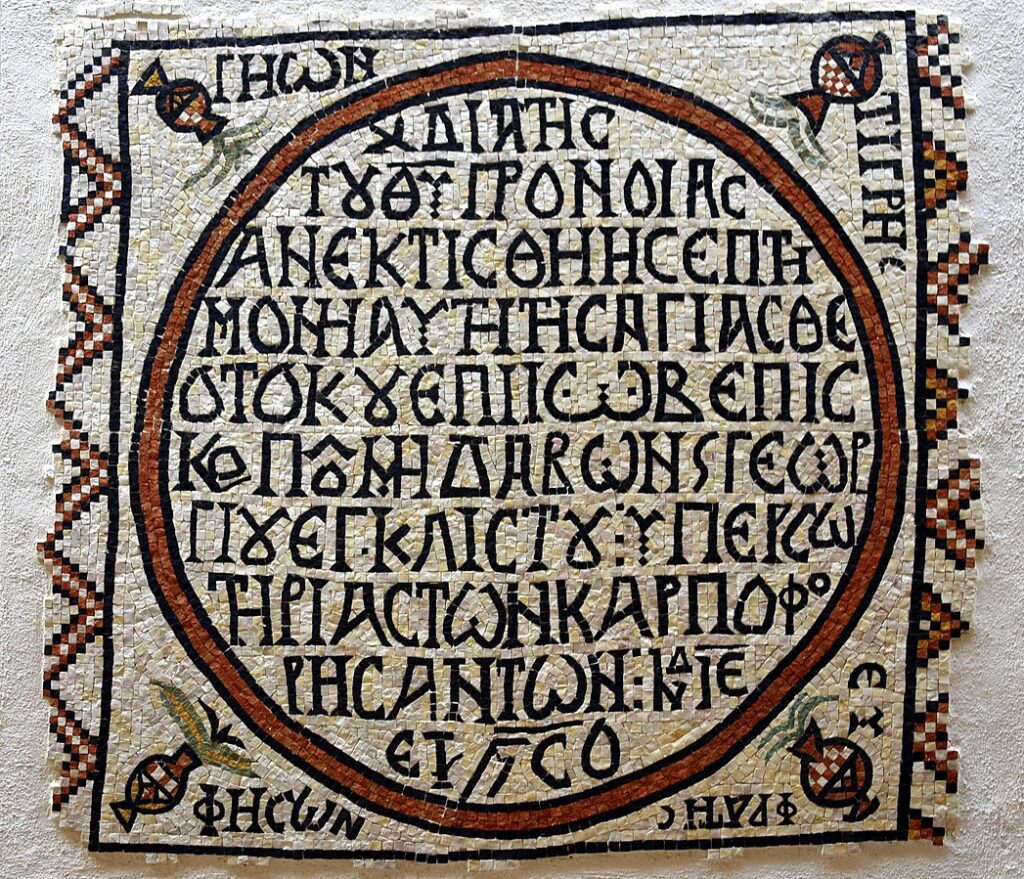 ΓΗΩΝ
ΤΙΓΡΗϹ
☧ ΔΙΑ ΤΗϹ
ΤȢ ΘΥ ΠΡΟΝΟΙΑϹ
ΑΝΕΚΤΙϹΘΗ Η ϹΕΠΤΗ
ΜΟΝΗ ΑΥΤΗ ΤΗϹ ΑΓΙΑϹ ΘΕ
ΟΤΟΚȢ ΕΠΙ ΙΩΒ ΕΠΙϹ
ΚΟΠΟΥ ΜΗΔΑΒΩΝ S ΓΕΩΡ
ΓΙȢ ΕΓΚΛΙϹΤȢ : ΥΠΕΡ ϹΩ
ΤΗΡΙΑϹ ΤΩΝ ΚΑΡΠΟΦΟ
ΡΗϹΑΝΤΩΝ : ΙΝΔ ΙΕ
ΕΤ ϚϹΟ
ΦΗϹΩΝ
ΕΥ
ΦΡΑΤΗϹ